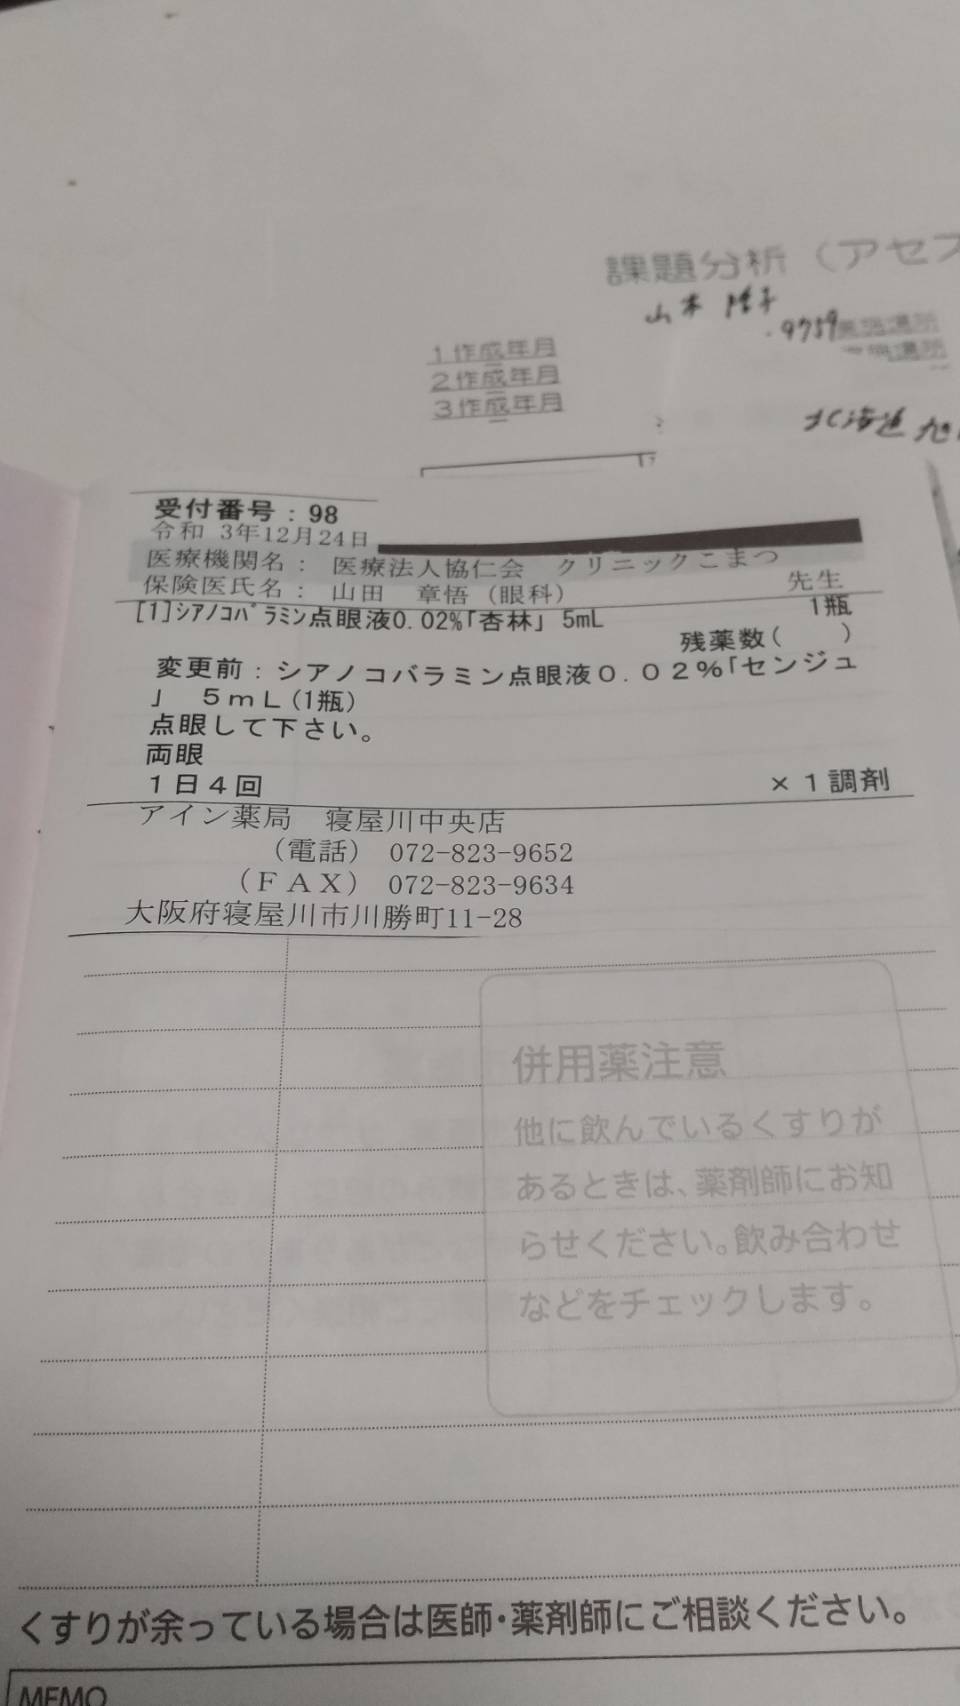 課題分析（アセス
山本
9759
1作成年月
2作成年月
3作成年月
北海道 旭
受付番号：98
令和 3年12月24日
医療機関名： 医療法人協仁会 クリニックこまつ
保険医氏名： 山田 章悟（眼科） 先生
[1]ｼｱﾉｺﾊﾞﾗﾐﾝ点眼液0.02%｢杏林」 5mL 1瓶
残薬数( )
変更前：シアノコバラミン点眼液０．０２％｢センジュ
」 ５ｍＬ(1瓶)
点眼して下さい。
両眼
１日４回 ×１調剤
アイン薬局 寝屋川中央店
（電話） 072-823-9652
（ＦＡＸ） 072-823-9634
大阪府寝屋川市川勝町11-28
併用薬注意
他に飲んでいるくすりが
あるときは、薬剤師にお知
らせください。飲み合わせ
などをチェックします。
くすりが余っている場合は医師・薬剤師にご相談ください。
MEMO